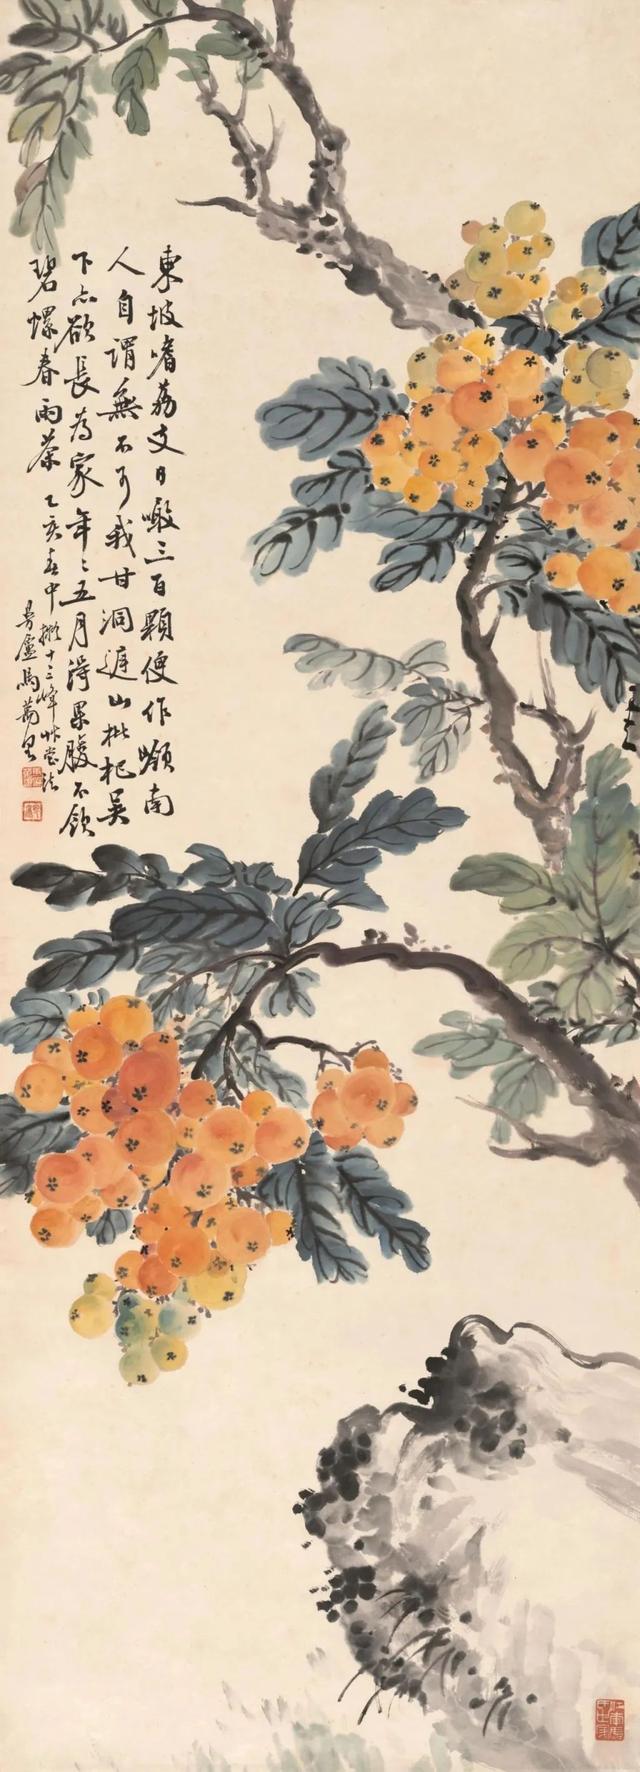 東坡嗜荔支日噉三百顆便作嶺南
人自謂無不可我甘洞庭山枇杷吳
下亦欲長為家年〻五月得果腹不飲
碧螺春雨茶 乙亥春中擬十三峰艸堂法
曼廬馬萬里